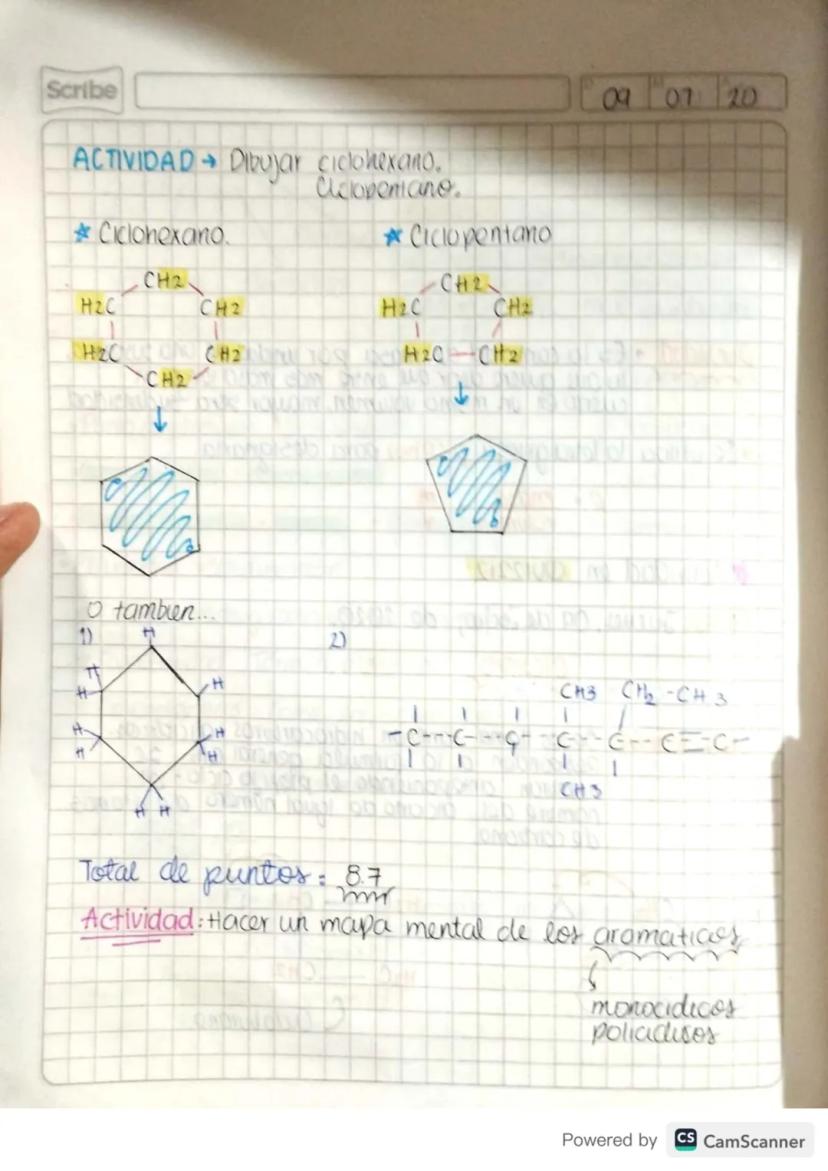 Scribe
09 07 20
ACTIVIDAD → Dibujar ciclohexano.
Ciclopentano.
* Ciclohexano.
* Ciclopentano
CH2
H2C CH2
H2C CH2
CH2
CH2
H2C CH2
H2C - CH2
O tambien...
1)
H
H
H
H
H
H
H
H
H
H H
2)
CH3 CH2 - CH3
- C - C - C - C - C - C ≡ C -
CH3
Total de puntos: 8.7
Actividad: Hacer un mapa mental de los aromaticos
Powered by CS CamScanner